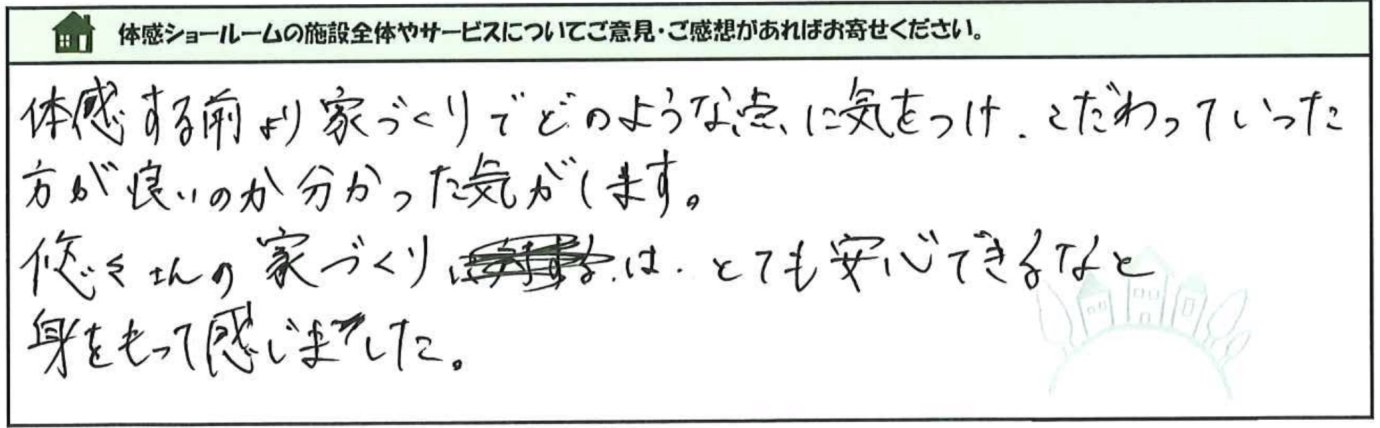 体感ショールームの施設全体やサービスについてご意見・ご感想があればお寄せください。
体感する前より家づくりでどのような点に気をつけ、こだわっていった
方が良いのか分かった気がします。
悠々さんの家づくりは、とても安心できるなと
身をもって感じました。